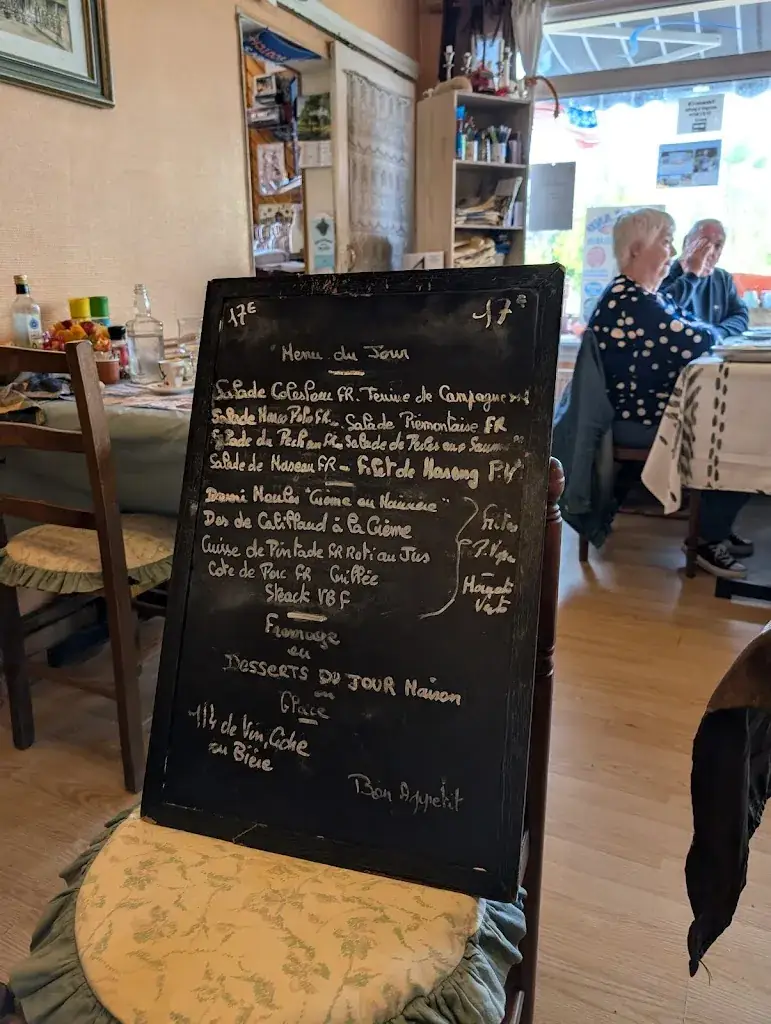 17€ 17€
Menu du Jour
Salade Coleslaw FR. Terrine de Campagne
Salade Marco Polo FR. Salade Piémontaise FR
Salade du Pecheur Salade de Perles au Saumon
Salade de Museau FR - Filet de Hareng P.V
Demi Moules "Crème ou Marinière"
Dos de Cabillaud à la Crème
Cuisse de Pintade FR Roti au Jus
Cote de Porc FR Grillée
Steack VBF
Frites
P. Vap
Haricots
Verts
Fromage
ou
DESSERTS DU JOUR Maison
ou
Glace
1/4 de Vin, Cidre
ou Bière
Bon Appetit